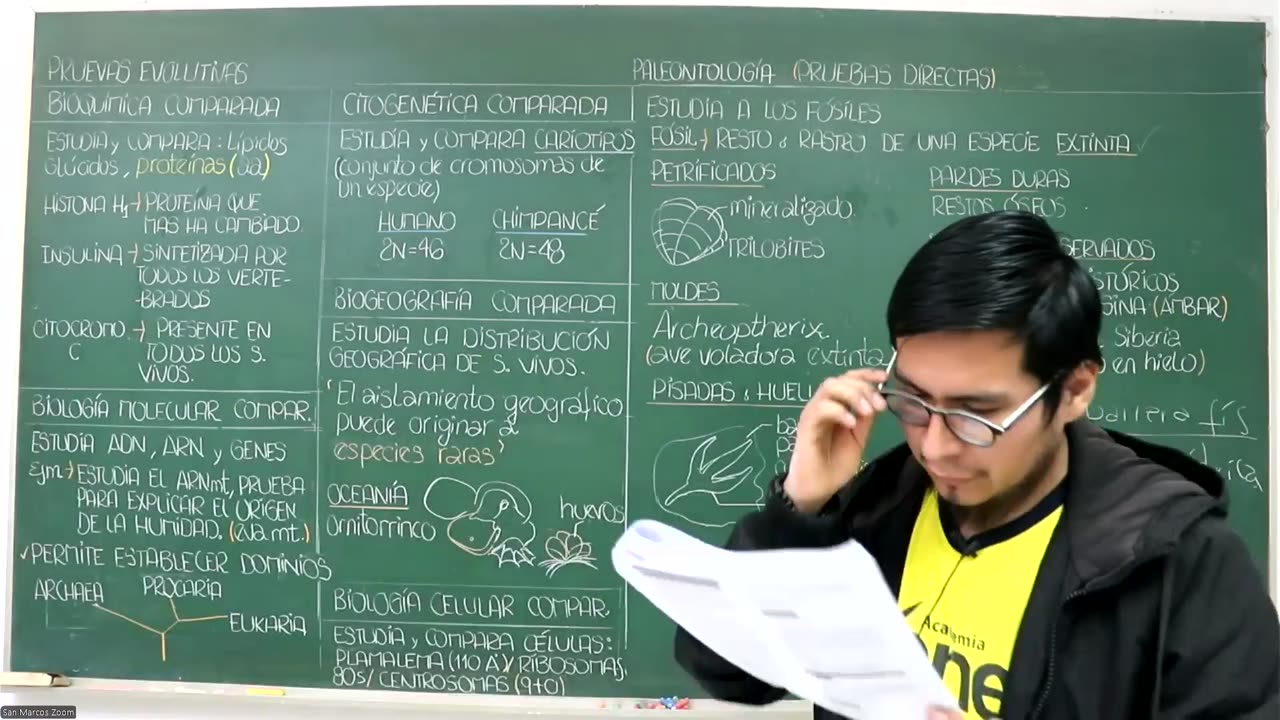 PRUEVAS EVOLUTIVAS
BIOQUÍMICA COMPARADA
ESTUDIA y COMPARA: Lípidos
Glúcidos, proteínas (aa)
HISTONA H → PROTEINA QUE
MAS HA CAMBIADO.
INSULINA → SINTETIZADA POR
TODOS LOS VERTE-
-BRADOS
CITOCROMO → PRESENTE EN
C TODOS LOS S.
VIVOS.
BIOLOGÍA MOLECULAR COMPAR.
ESTUDIA ADN, ARN y GENES
Ejm → ESTUDIA EL ARNmt, PRUEBA
PARA EXPLICAR EL ORIGEN
DE LA HUMIDAD. (Eva mt.)
✓PERMITE ESTABLECER DOMINIOS
ARCHAEA
PROCARIA
EUKARIA
CITOGENÉTICA COMPARADA
ESTUDÍA y COMPARA CARIOTIPOS
(conjunto de cromosomas de
un especie)
HUMANO CHIMPANCÉ
2N=46 2N=48
BIOGEOGRAFÍA COMPARADA
ESTUDIA LA DISTRIBUCIÓN
GEOGRÁFICA DE S. VIVOS.
"El aislamiento geográfico
puede originar a
especies raras"
OCEANÍA
ornitorrinco
huevos
BIOLOGÍA CELULAR COMPAR.
ESTUDÍA y COMPARA CÉLULAS:
PLAMALEMA (110 A°)/ RIBOSOMAS,
80s/ CENTROSOMAS (9+0)
PALEONTOLOGÍA (PRUEBAS DIRECTAS)
ESTUDIA A LOS FÓSILES
FÓSIL → RESTO o RASTRO DE UNA ESPECIE EXTINTA ✓
PETRIFICADOS
mineralizado.
TRILOBITES
MOLDES
Archeoptherix.
(ave voladora extinta
PISADAS o HUELL
PARDES DURAS
RESTOS ÓSEOS
SERVADOS
STÓRICOS
SINA (AMBAR)
Siberia
en hielo)
barrera fís
Academia
ne
San Marcos Zoom